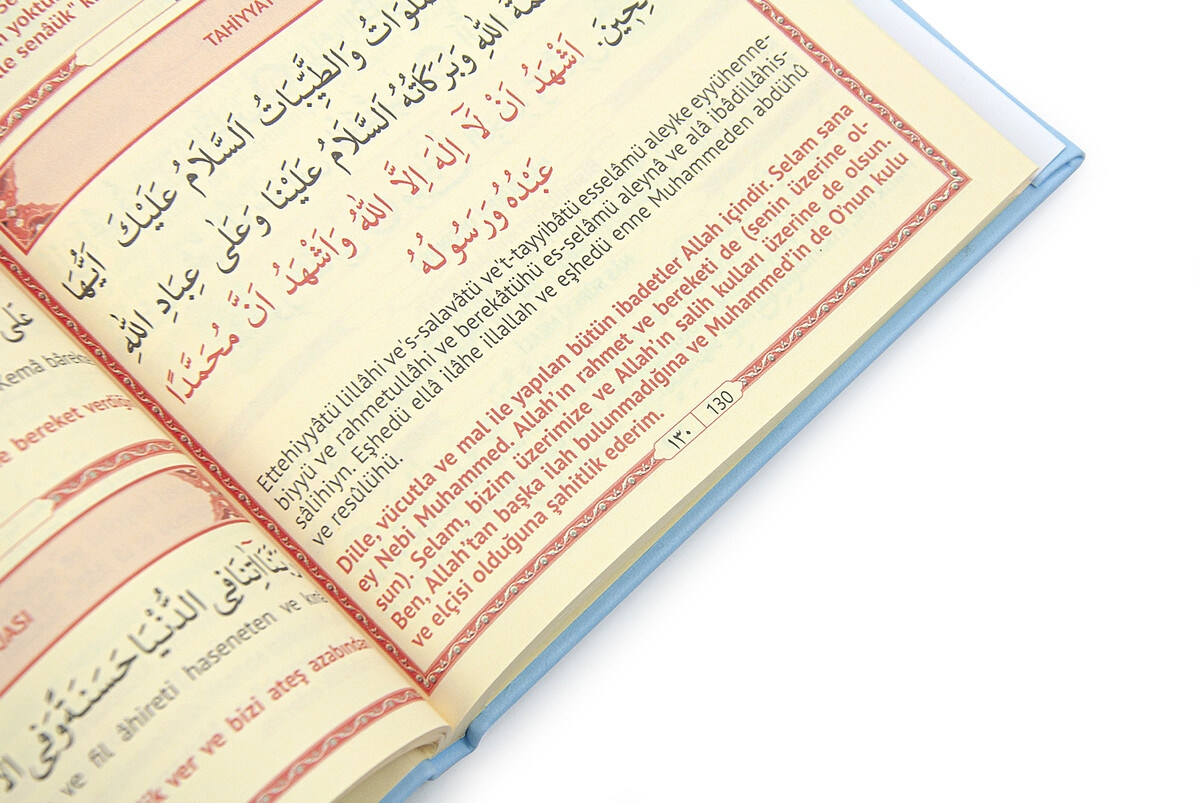 n yoktu
le senâiük" k
TAHİYYA
وَالطَّيِّبَاتُ اَلسَّلَامُ عَلَيْكَ اَيُّهَا
اللّٰهِ وَبَرَكَاتُهُ اَلسَّلَامُ عَلَيْنَا وَعَلٰى عِبَادِ اللّٰهِ
اَشْهَدُ اَنْ لَٓا اِلٰهَ اِلَّا اللّٰهُ وَاَشْهَدُ اَنَّ مُحَمَّدًا
عَبْدُهُ وَرَسُولُهُ
Ettehiyyâtü lillâhi ve's-salavâtü ve't-tayyibâtü esselâmü aleyke eyyühenne-
biyyü ve rahmetullâhi ve berekâtühü es-selâmü aleynâ ve alâ ibâdillâhis-
sâlihiyn. Eşhedü ellâ ilâhe illallah ve eşhedü enne Muhammeden abdühû
ve resûlühü.
Dille, vücutla ve mal ile yapılan bütün ibadetler Allah içindir. Selam sana
ey Nebi Muhammed. Allah'ın rahmet ve bereketi de (senin üzerine ol-
sun). Selam, bizim üzerimize ve Allah'ın salih kulları üzerine de olsun.
Ben, Allah'tan başka ilah bulunmadığına ve Muhammed'in de O'nun kulu
ve elçisi olduğuna şahitlik ederim.
١٣٠ 130
عَلٰى
Kemâ bârek
e bereket verdiği
UASI
اٰتِنَا فِى الدُّنْيَا حَسَنَةً وَفِى
ve fil âhireti haseneten ve kınâ
ik ver ve bizi ateş azabında